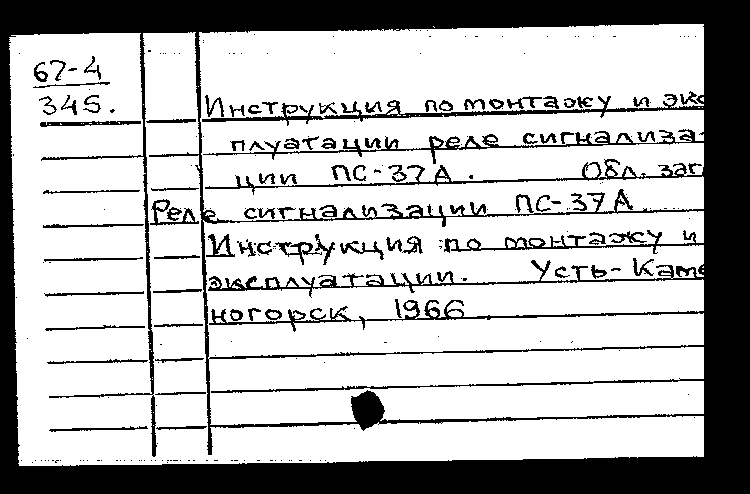 67-4
345.
Инструкция по монтажу и экс
плуатации реле сигнализа-
ции ПС-37А. Обл. заг
Реле сигнализации ПС-37А.
Инструкция по монтажу и
эксплуатации. Усть-Каме
ногорск, 1966.